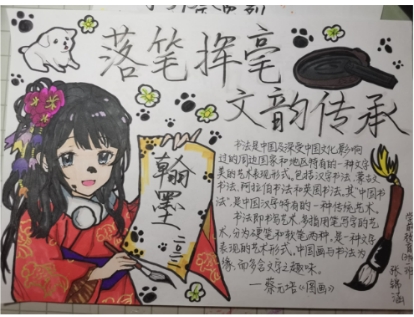 落笔挥毫
文韵传承
翰墨
书法是中国及深受中国文化影响
过的周边国家和地区特有的一种文字
美的艺术表现形式,包括汉字书法、蒙古
书法、阿拉伯书法和英闻书法。其"中国书
法",是中国汉字特有的一种传统艺术。
书法即书写艺术,多指用笔写字的艺
术,分为硬笔和软笔两种,是一种文字
表现的艺术形式。中国画与书法为
缘,而多含文字之趣味。
—蔡元培《图画》